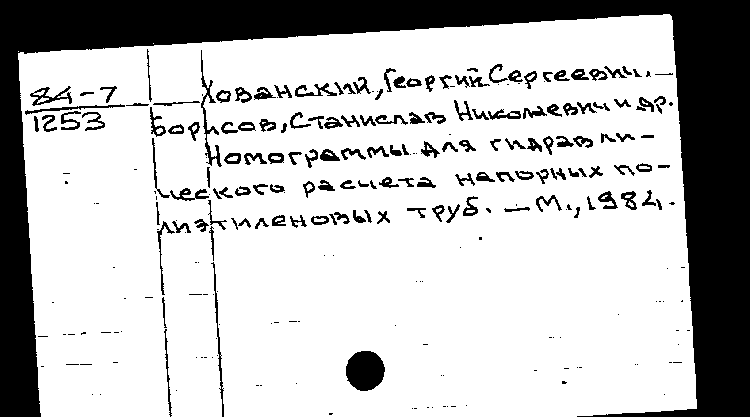 84-7
1253
Хованский, Георгий Сергеевич. —
Борисов, Станислав Николаевич и др.
Номограммы для гидравли-
ческого расчета напорных по-
лиэтиленовых труб. — М., 1984.